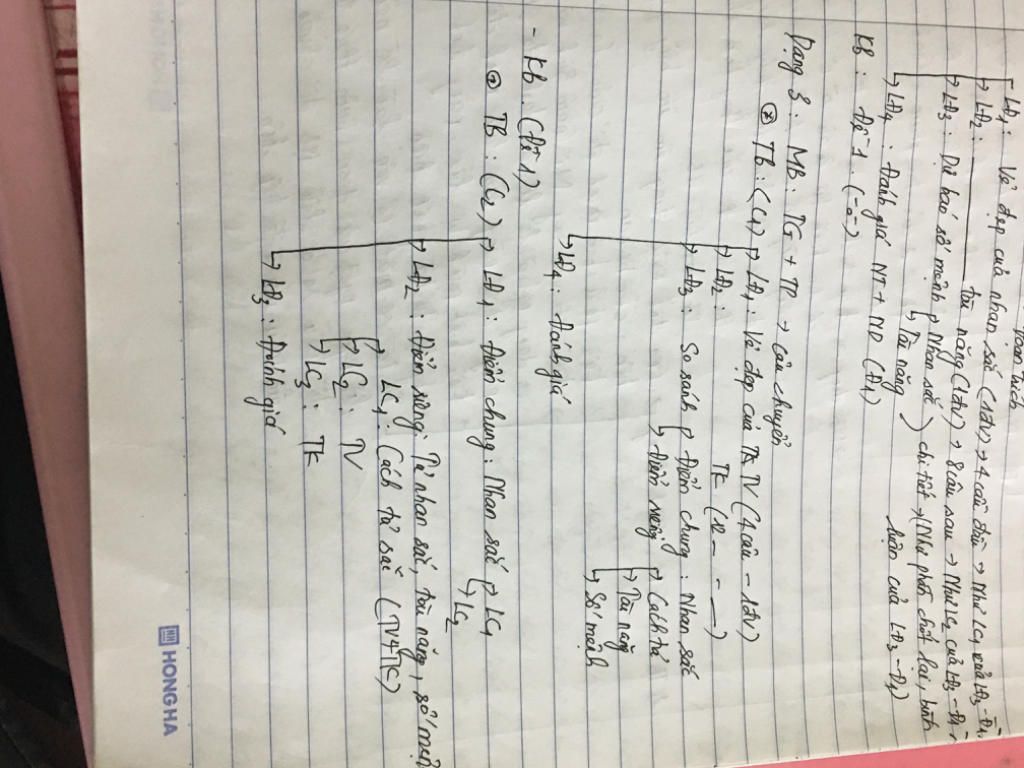 đoạn trích
- LĐ1: Vẻ đẹp của nhan sắc (12V) → 4 câu đầu → Như LC1 của LĐ3 - Đ1.
→ LĐ2: ——— tài năng (12V) → 8 câu sau → Như LC2 của LĐ3 - Đ1
→ LĐ3: Dự báo số mệnh → Nhan sắc ) chi tiết → (Như phần chốt lại, bình
→ Tài năng
luận của LĐ3 - Đ1)
→ LĐ4: Đánh giá NT + ND (Đ1)
KB: Đề 1. (-nt-)
Dạng 3: MB: TG + TP → câu chuyển
⊛ TB: (C1) → LĐ1: Vẻ đẹp của TV (4 câu - 12V)
→ LĐ2: TK (12 — - —)
→ LĐ3: So sánh → Điểm chung: Nhan sắc
→ Điểm riêng → Cách tả
→ Tài năng
→ Số mệnh
→ LĐ4: Đánh giá
- KB. (Đề 1)
⊛ TB: (C2) → LĐ1: Điểm chung: Nhan sắc → LC1
→ LC2
→ LĐ2: Điểm riêng: Tả nhan sắc, tài năng, số mệnh
LC1: Cách tả sắc (TV+TK)
→ LC2: TV
→ LC3: TK
→ LĐ3: Đánh giá
HONG HA